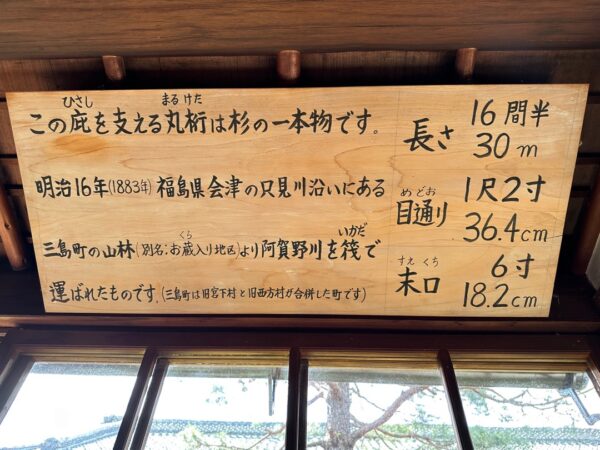 ひさし まるけた
この庇を支える丸桁は杉の一本物です。
明治16年(1883年)福島県会津の只見川沿いにある
くら いかだ
三島町の山林(別名・お蔵入り地区)より阿賀野川を筏で
運ばれたものです。(三島町は旧宮下村と旧西方村が合併した町です)
長さ 16間半
30m
めどお
目通り 1尺2寸
36.4cm
すえくち
末口 6寸
18.2cm